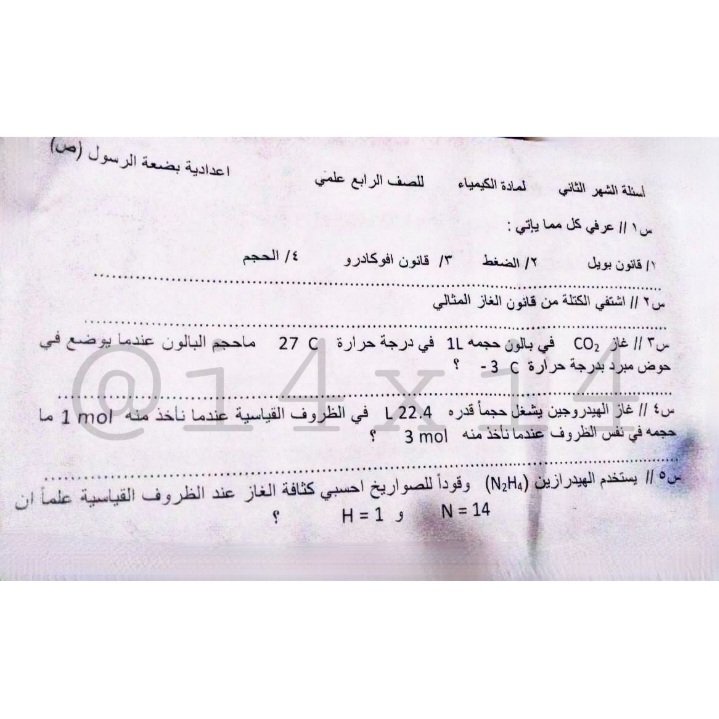 اعدادية بضعة الرسول (ص)
اسئلة الشهر الثاني لمادة الكيمياء للصف الرابع علمي
س١ // عرفي كل مما يأتي :
١/ قانون بويل ٢/ الضغط ٣/ قانون افوكادرو ٤/ الحجم
س٢ // اشتقي الكتلة من قانون الغاز المثالي
س٣ // غاز CO₂ في بالون حجمه 1L في درجة حرارة 27 C ماحجم البالون عندما يوضع في
حوض مبرد بدرجة حرارة 3 C - ؟
س٤ // غاز الهيدروجين يشغل حجماً قدره 22.4 L في الظروف القياسية عندما نأخذ منه 1 mol ما
حجمه في نفس الظروف عندما نأخذ منه 3 mol ؟
س٥ // يستخدم الهيدرازين (N₂H₄) وقوداً للصواريخ احسبي كثافة الغاز عند الظروف القياسية علماً ان
N = 14 و H = 1 ؟
@i4x14